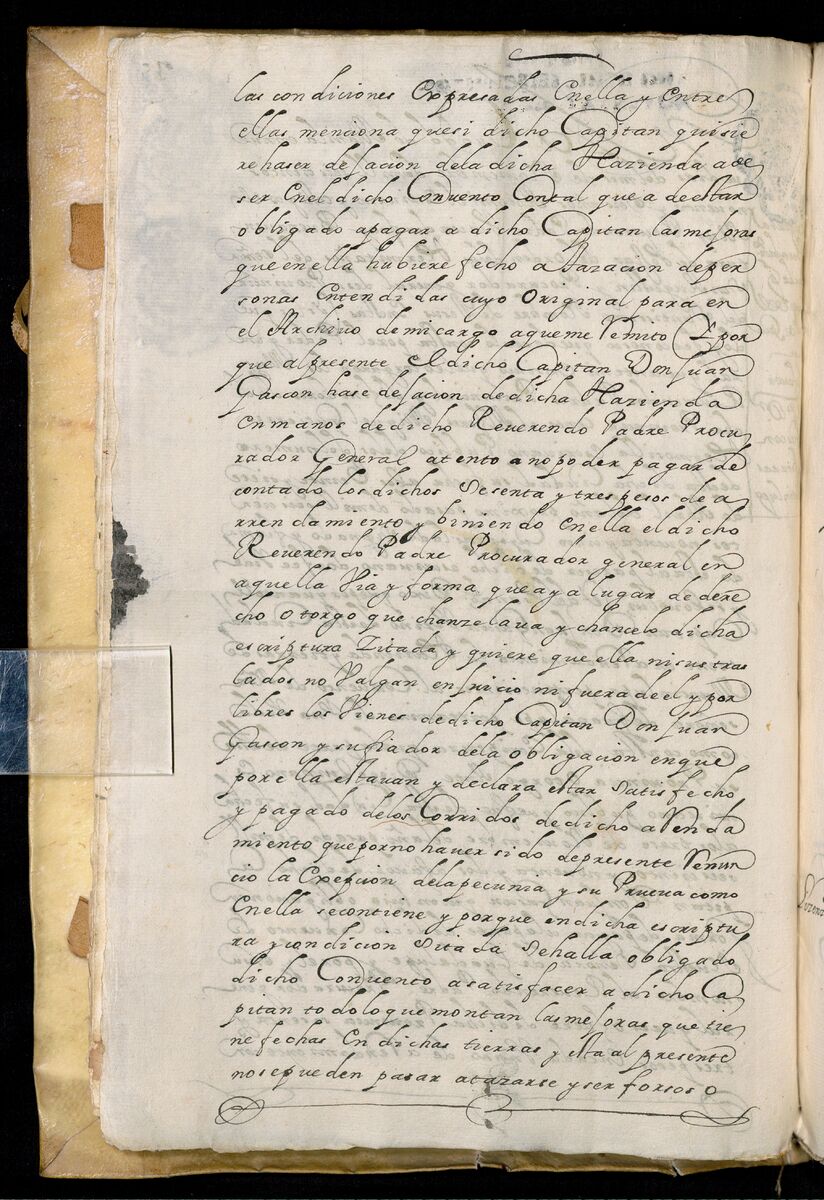 las condiciones Expresadas Enella y Entre
ellas menciona quesi dicho Capitan quisie
rehaser desacion dela dicha Hazienda a de
ser Enel dicho Convento Contal que a de estar
obligado apagar a dicho Capitan las mejoras
que en ella hubiere fecho a tazacion de per
sonas Entendidas cuyo Original para en
el Archivo demicargo aqueme Remito Y por
que alpresente el dicho Capitan Don Juan
Gascon hase desacion de dicha Hazienda
En manos de dicho Reverendo Padre Procu
rador General atento anopoder pagar de
contado los dichos Sesenta y tres pesos de a
rrendamiento y biniendo Enella el dicho
Reverendo Padre Procurador general en
aquella Via y forma que aya lugar de dere
cho otorgo que chanzelava y chancelo dicha
escriptura Zitada y quiere que ella nisus tras
lados no Valgan en Juicio ni fuera de el y por
libres los Vienes dedicho Capitan Don Juan
Gascon y su fiador dela obligacion enque
por ella estavan y declara estar satisfecho
y pagado delos Corridos dedicho a Renda
miento que porno haver sido depresente Renun
cio la Exepcion delapecunia y su Prueva como
Enella secontiene y porque en dicha escriptu
ra y condicion Sitada Sehalla obligado
dicho Convento a satisfacer a dicho Ca
pitan todo loque montan las mejoras que tie
ne fechas En dichas tierras y esta al presente
nosepueden pasar atazarse y ser forsoso